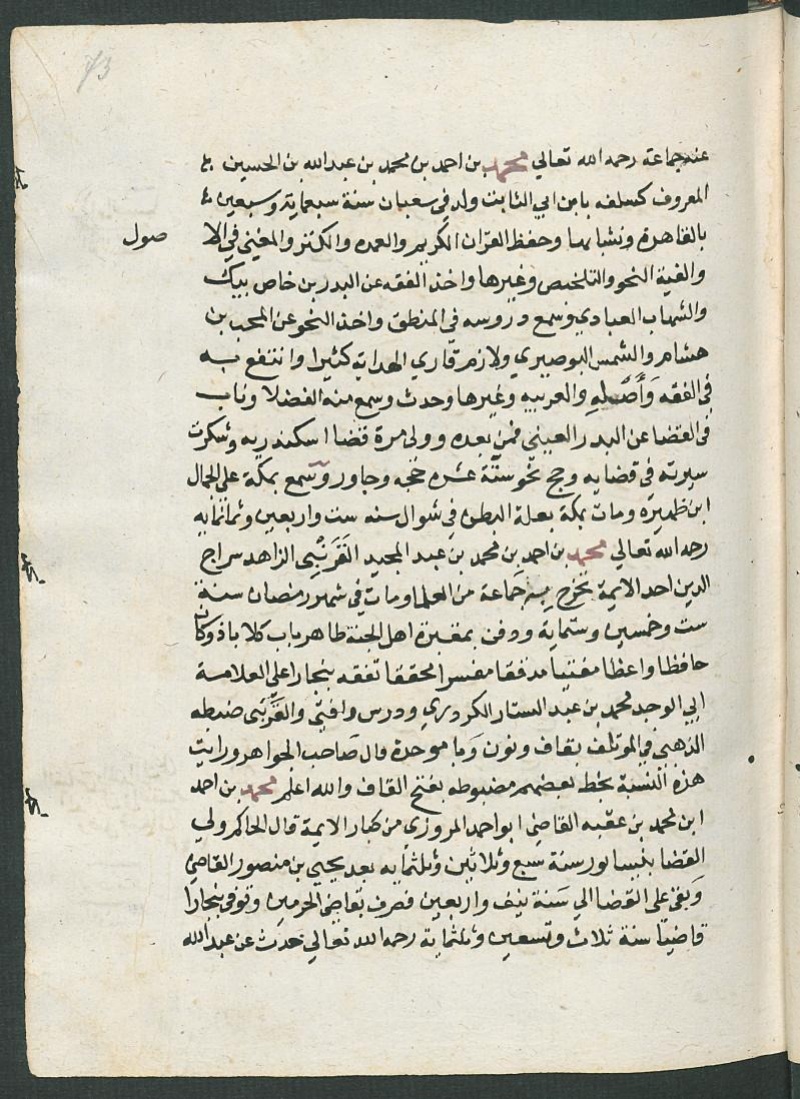 73
عند جماعة رحمه الله تعالي محمد بن احمد بن محمد بن عبد الله بن الحسين
المعروف كسلفه بابن ابي الثابت ولد في سعبان سنة سبعماية وسبعين
بالقاهرة ونشا بها وحفظ القران الكريم والعمده والكنز والمغني في الا
صول
والفية النحو والتلخيص وغيرها واخذ الفقه عن البدر بن خاص بيك
والشهاب العبادي وسمع دروسه في المنطق واخذ النحو عن المحب بن
هشام والشمس البوصيري ولازم قاري الهدايه كثيرا وانتفع به
في الفقه وأصله والعربيه وغيرها وحدث وسمع منه الفضلا وناب
في القضا عن البدر العيني فمن بعده وولي مرة قضا اسكندريه وشكرت
سيرته في قضايه وحج نحو ستة عشره حجه وجاور وسمع بمكة علي الجمال
ابن ظهيره ومات بمكة بعلة البطن في شوال سنه ست واربعين وثمانمايه
رحمه الله تعالي محمد بن احمد بن محمد بن عبد المجيد القرنبي الزاهد سراج
الدين احد الايمة تخرج به جماعة من العلما ومات في شهر رمضان سنة
ست وخمسين وستماية ودفن بمقبرة اهل الجنة ظاهر باب كلاباذ وكان
حافظا واعظا مفتيا مدققا مفسرا محققا تفقه ببخارا علي العلامة
ابي الوجد محمد بن عبد الستار الكردري ودرس وافتي والقرنبي ضبطه
الذهبي في الموتلف بقاف ونون وبا موحدة وال صاحب الجواهر ورايت
هذه النسبة بخط بعضهم مضبوطه بفتح القاف والله اعلم محمد بن احمد
ابن محمد بن عقبه القاضي ابو احمد المروزي من كبار الايمة قال الحاكم ولي
القضا بنيسابور سنة سبع وثلاثين وثلثمايه بعد يحيي بن منصور القاضي
وبقي علي القضا الي سنة نيف واربعين فصرف بقاضي الحرمين وتوفي ببخارا
قاضيا سنة ثلاث وتسعين وثلثماية رحمه الله تعالي حدث عن عبد الله